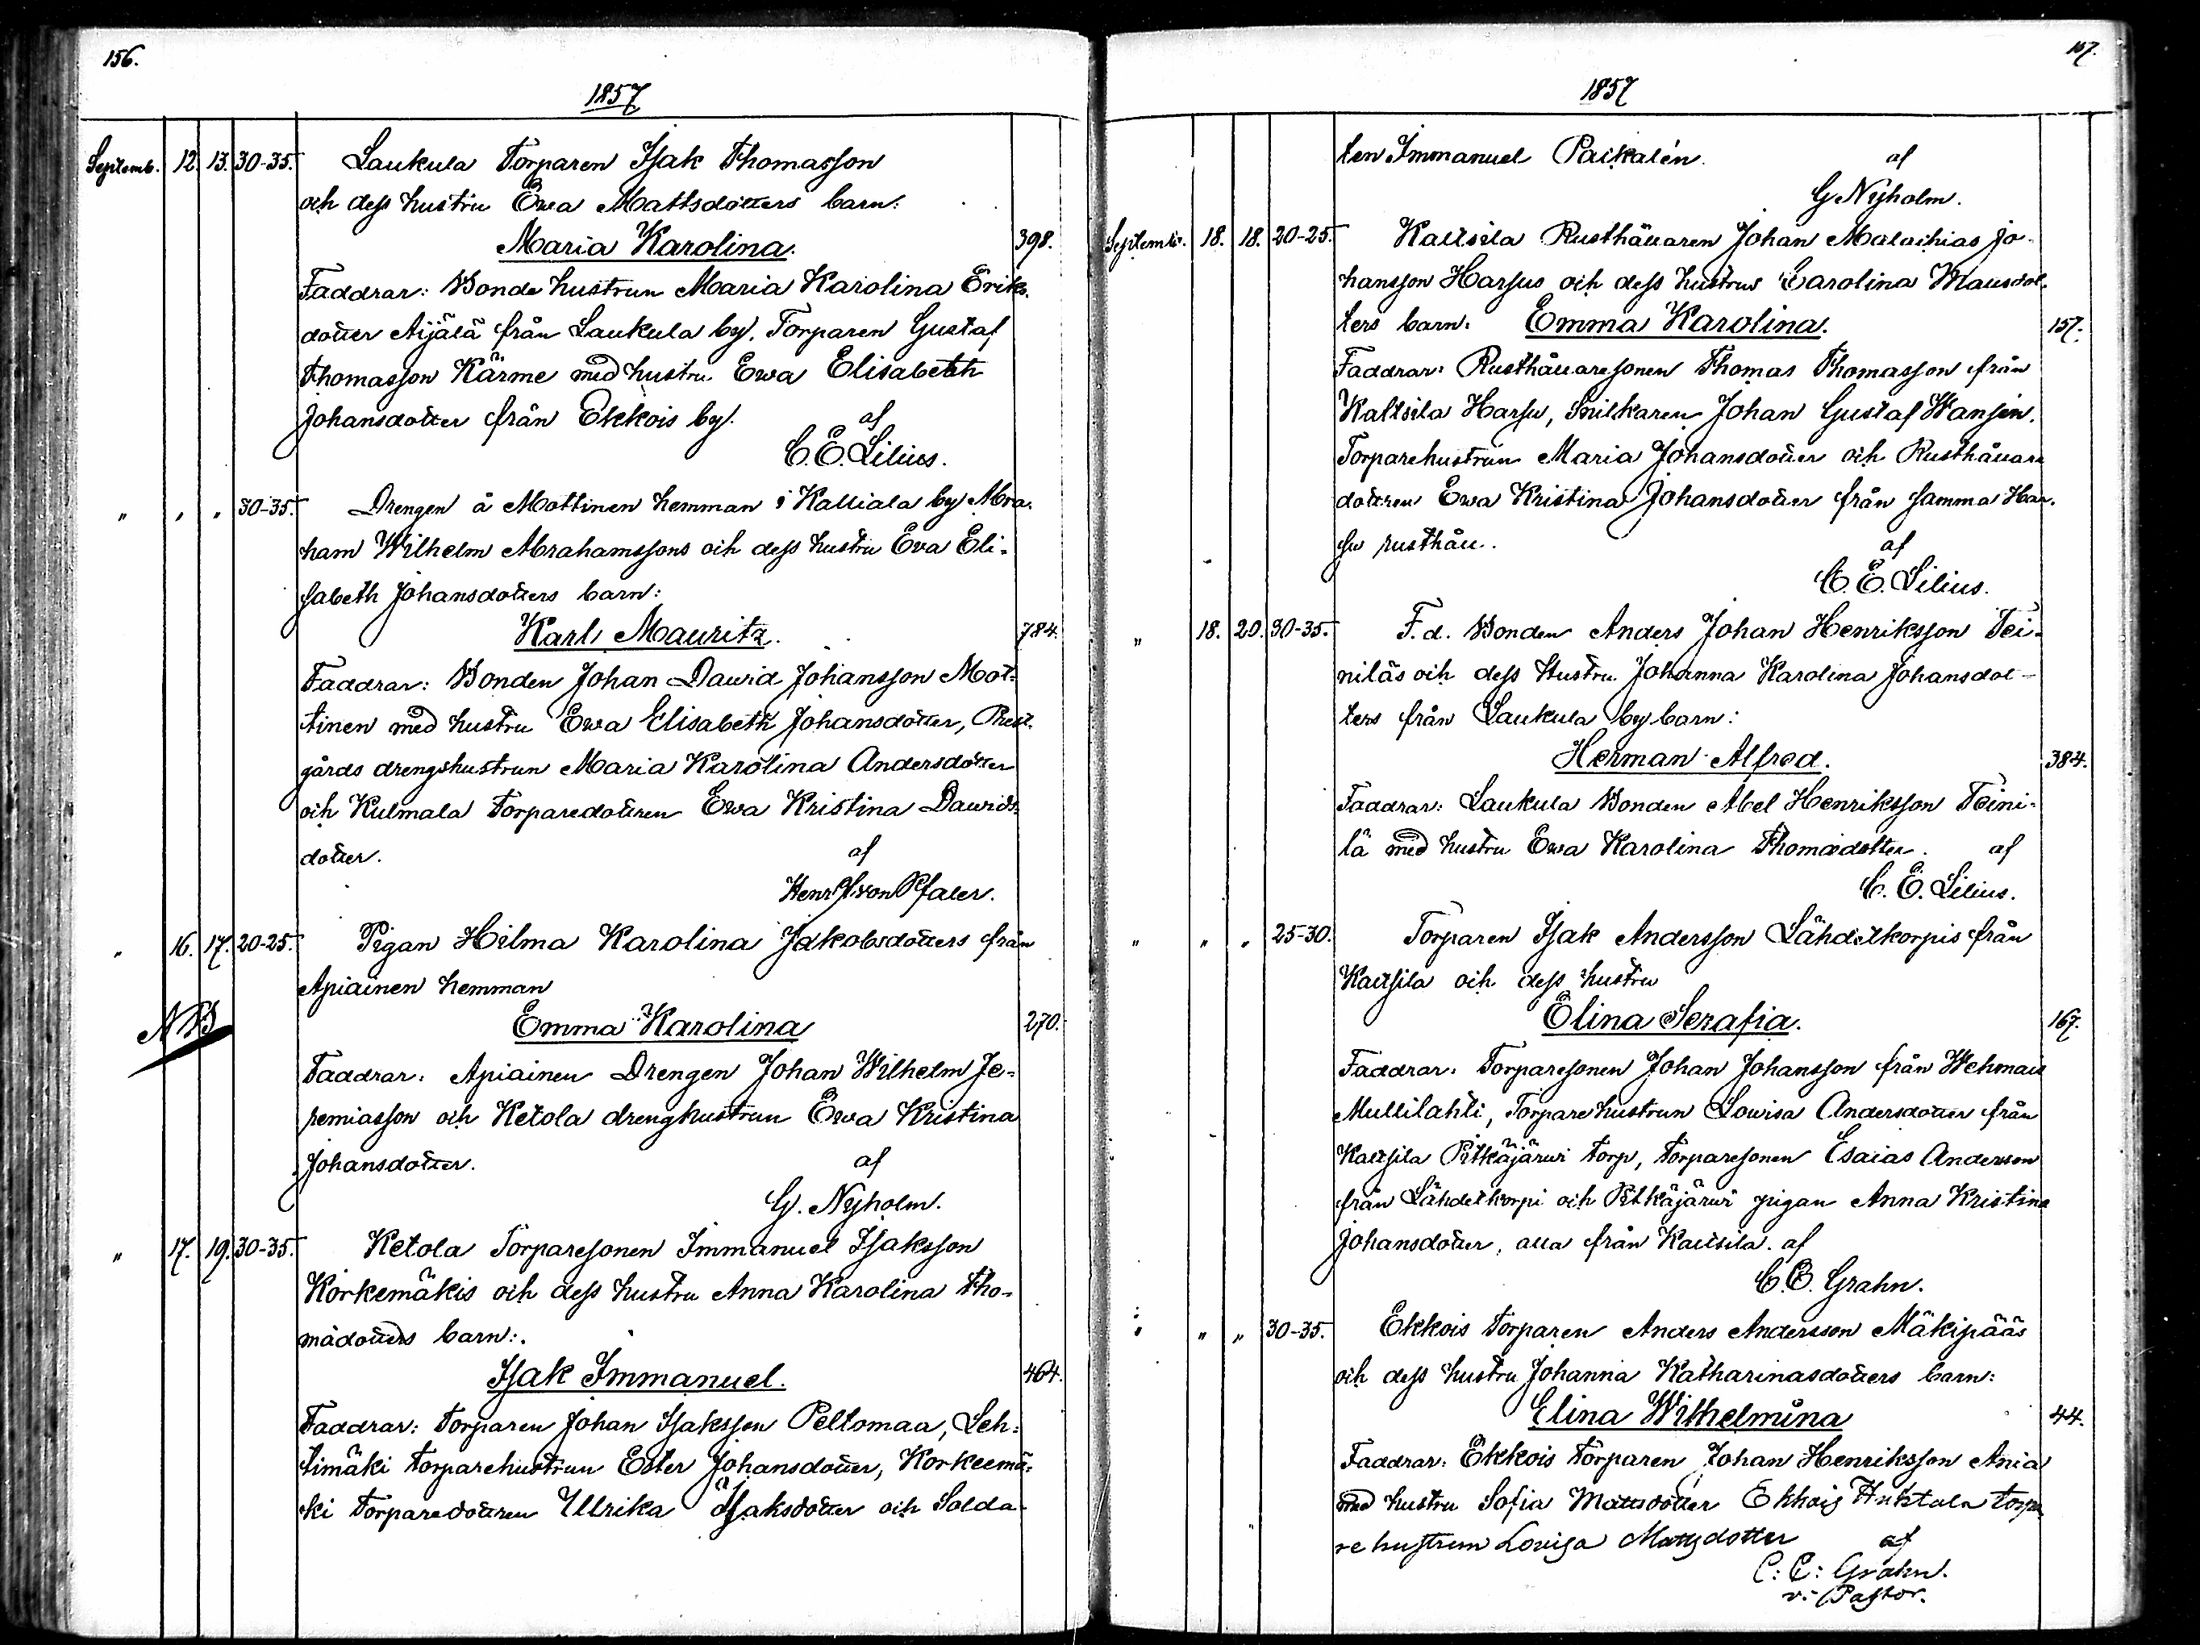 156.
1857
Septemb. 12. 13. 30-35. Laukula Torparen Isak Thomasson
och dess hustru Ewa Mattsdotters barn:
Maria Karolina. 398.
Faddrar: Bonde hustrun Maria Karolina Eriks-
dotter Äijälä från Laukula by. Torparen Gustaf
Thomasson Kärme med hustru Ewa Elisabeth
Johansdotter från Ekkois by. af
C. E. Lilius.
" " " 30-35. Drengen å Mottinen hemman i Kalliala by Abra-
ham Wilhelm Abrahamssons och dess hustru Eva Eli-
sabeth Johansdotters barn:
Karl Mauritz. 784.
Faddrar: Bonden Johan Dawid Johansson Mot-
tinen med hustru Ewa Elisabeth Johansdotter, Prest-
gårds drengshustrun Maria Karolina Andersdotter
och Kulmala Torparedottren Ewa Kristina Dawids-
dotter. af
Henr. J. von Pfaler.
" 16. 17. 20-25. Pigan Hilma Karolina Jakobsdotters från
Apiainen hemman
NB
Emma Karolina 270.
Faddrar: Apiainen Drengen Johan Wilhelm Je-
remiasson och Ketola drenghustrun Ewa Kristina
Johansdotter. af
G. Nyholm.
" 17. 19. 30-35. Ketola Torparesonen Immanuel Isaksson
Korkemäkis och dess hustru Anna Karolina Tho-
mädotters barn:
Isak Immanuel. 464.
Faddrar: Torparen Johan Isaksson Peltomaa, Leh-
timäki torparehustrun Ester Johansdotter, Korkeemä-
ki Torparedottren Ullrika Isaksdotter och Solda-
157.
1857
ten Immanuel Paikalén. af
G Nyholm.
Septemb. 18. 18. 20-25. Kaltsila Rusthållaren Johan Malachias Jo-
hansson Harsus och dess hustrus Carolina Mattsdot-
ters barn: Emma Karolina. 157.
Faddrar: Rusthållaresonen Thomas Thomasson från
Kaltsila Harsu, Snikaren Johan Gustaf Wansén.
Torparehustrun Maria Johansdotter och Rusthållare
dottren Ewa Kristina Johansdotter från samma Har-
su rusthåll. af
C. E. Lilius.
" 18. 20. 30-35. F. d. Bonden Anders Johan Henriksson Tei-
niläs och dess Hustru Johanna Karolina Johansdot-
ters från Laukula by barn:
Herman Alfred. 384.
Faddrar: Laukula Bonden Abel Henriksson Teini-
lä med hustru Ewa Karolina Thomædotter. af
C. E. Lilius.
" " " 25-30. Torparen Isak Andersson Lähdetkorpis från
Kaltsila och dess hustru
Elina Serafia. 167.
Faddrar: Torparesonen Johan Johansson från Wehmais
Mullilahti, Torparehustrun Lowisa Andersdotter från
Kaltsila Pitkäjärwi torp, torparesonen Esaias Andersson
från Lähdetkorpi och Pitkäjärwi pigan Anna Kristina
Johansdotter, alla från Kaltsila. af
C. E. Grahn.
" " " 30-35. Ekkois torparen Anders Andersson Mäkipääs
och dess hustru Johanna Katharinasdotters barn:
Elina Wilhelmina 44.
Faddrar: Ekkois torparen Johan Henriksson Ania
med hustru Sofia Mattsdotter Ekkois Huktala torpa
re hustrun Lovisa Mattsdotter af
C: E: Grahn.
v: Pastor.